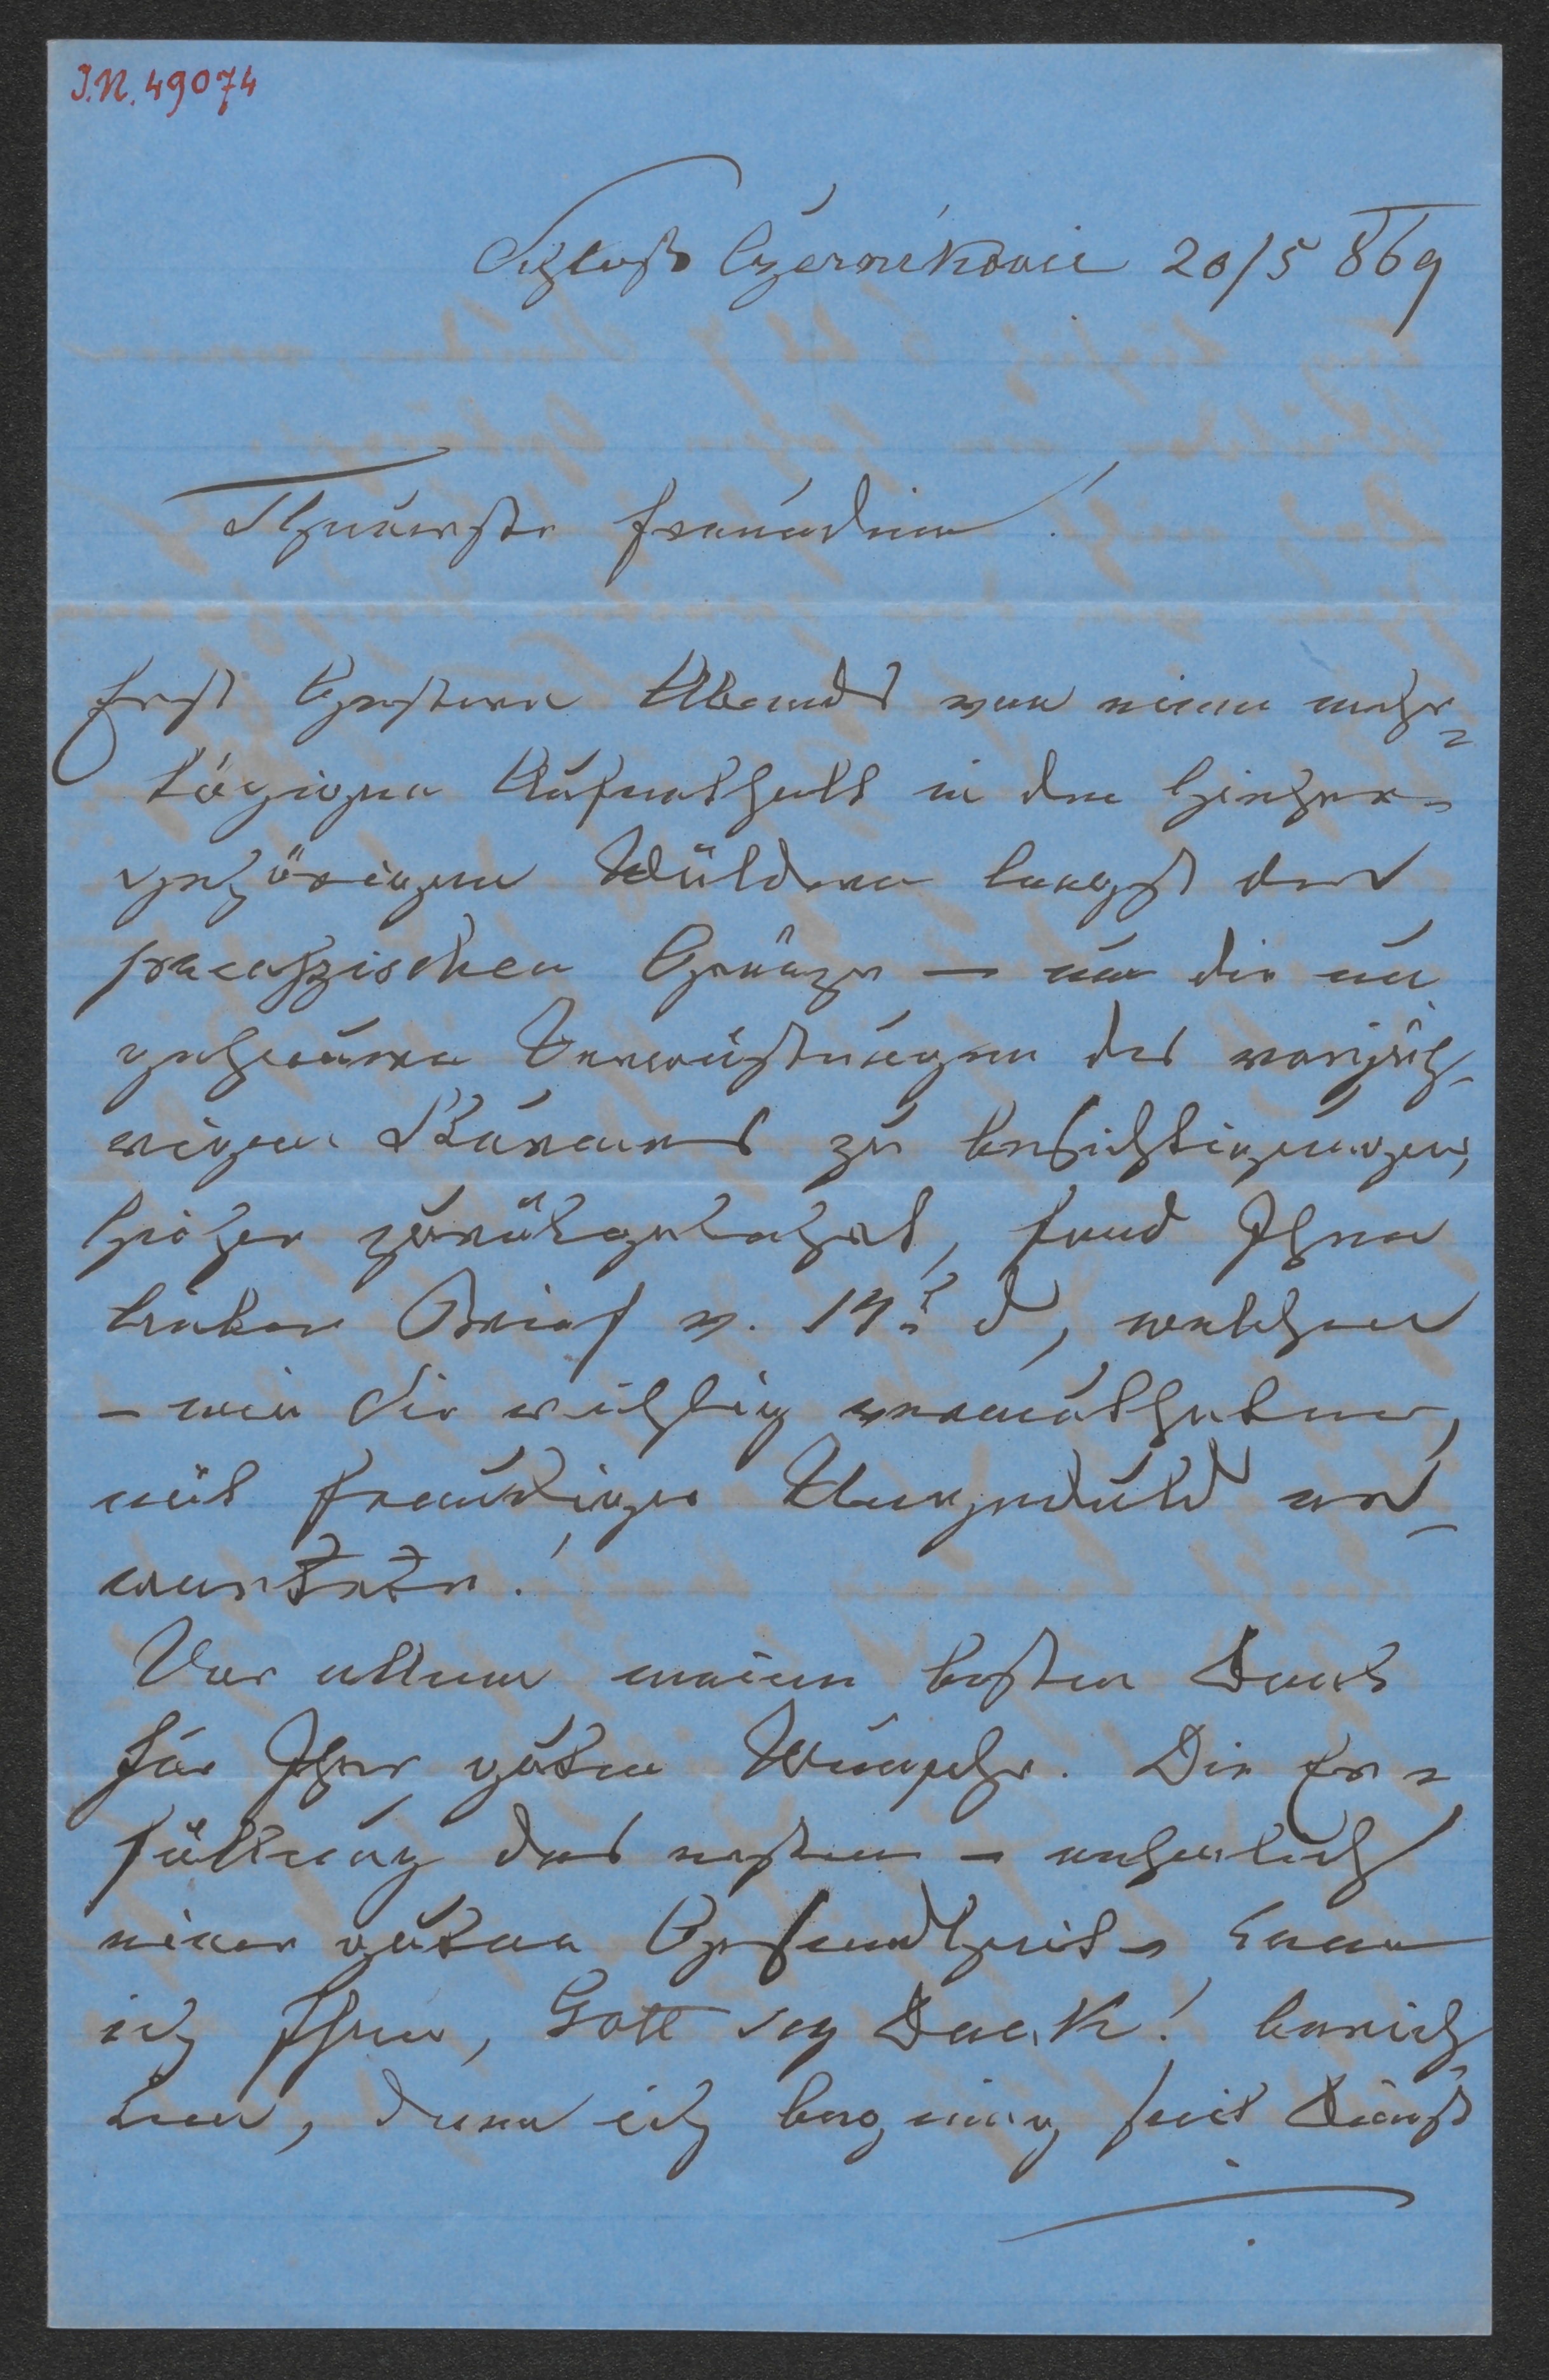 I.N. 49074
Schloß Czernikovic 20/5 869
Theuerste Freundin!
Erst Gestern Abends von einem mehr-
tägigen Aufenthalt in den hierher-
gehörigen Wäldern längst der
preußzischen Gränze – um die un
geheuren Verwüstungen des vorjäh-
rigen Sturmes zu besichtigungen,
hieher zurükgekehrt, fand Ihren
lieben Brief v. 14t d, welchen
– wie Sie richtig vermutheten,
mit freudiger Ungeduld er-
wartete!
Vor allem meinen besten Dank
für Ihre guten Wünsche. Die Er-
füllung des ersten – nehmlich
einer guten Gesundheit – kann
ich Ihnen, Gott sey Dank! berich
ten, denn ich beging seit Dienst